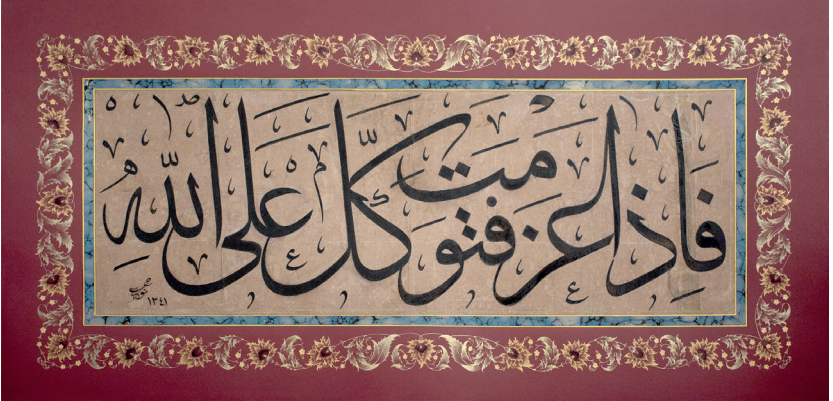 فَاِذا عزمت فتوكّل على الله
١٣٤١